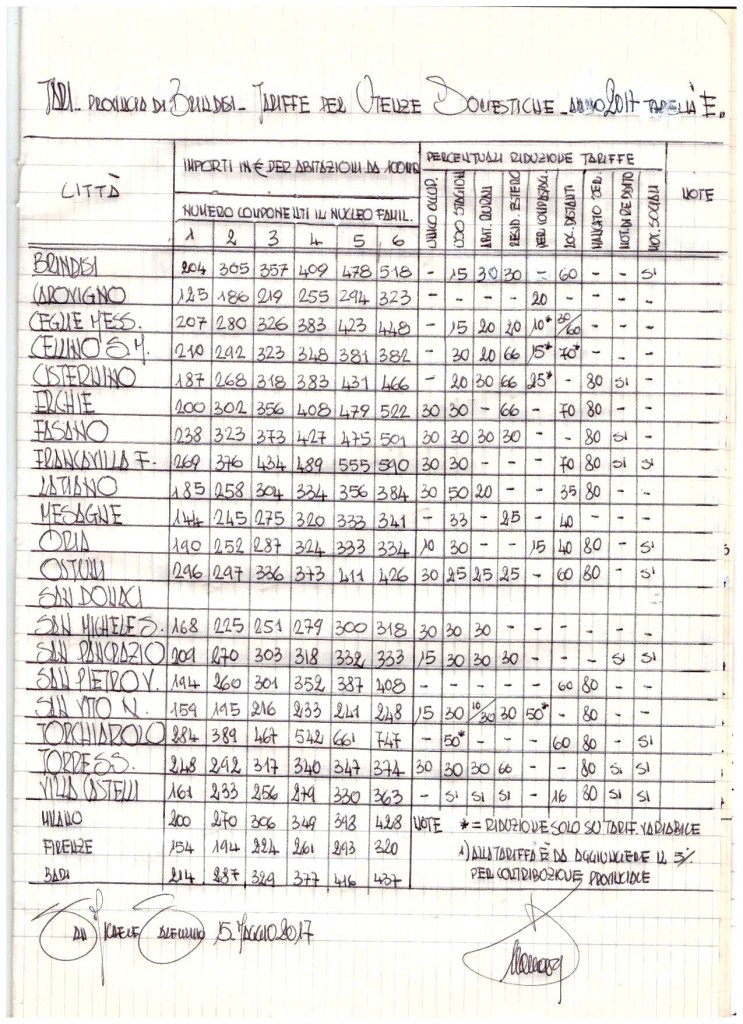 TARI - PROVINCIA DI BRINDISI - TARIFFE PER UTENZE DOMESTICHE - ANNO 2017 TABELLA E.
CITTÀ IMPORTI IN € PER ABITAZIONI DA 100MQ PERCENTUALI RIDUZIONE TARIFFE NOTE
NUMERO COMPONENTI IN NUCLEO FAMIL. UNICO OCCUP. USO STAGION. ABIT. RURALI RESID. ESTERO VER. COMPOSTAG. LOC. DISTANTI MANCATO SER. MOT. DI REDDITO MOT. SOCIALI
1 2 3 4 5 6
BRINDISI 204 305 357 409 478 518 - 15 30 30 - 60 - - SI
CAROVIGNO 125 186 219 255 294 323 - - - - 20 - - - -
CEGLIE MESS. 207 280 326 383 423 448 - 15 20 20 10* 30/60 - - -
CELLINO S M. 210 292 323 348 381 382 - 30 20 66 15* 70* - - -
CISTERNINO 187 268 318 383 431 466 - 20 30 66 25* - 80 SI -
ERCHIE 200 302 356 408 479 522 30 30 - 66 - 70 80 - -
FASANO 238 323 373 427 475 501 30 30 30 30 - - 80 SI -
FRANCAVILLA F. 269 376 434 489 555 590 30 30 - - - 70 80 SI SI
LATIANO 185 258 304 334 356 384 30 50 20 - - 35 80 - -
MESAGNE 144 245 275 320 333 341 - 33 - 25 - 40 - - -
ORIA 190 252 287 324 333 334 10 30 - - 15 40 80 - SI
OSTUNI 296 297 336 373 411 426 30 25 25 25 - 60 80 - SI
SAN DONACI
SAN MICHELE S. 168 225 251 279 300 318 30 30 30 - - - - - -
SAN PANCRAZIO 209 270 303 318 332 333 15 30 30 30 - - - SI SI
SAN PIETRO V. 194 260 301 352 387 408 - - - - - 60 80 - -
SAN VITO N. 159 195 216 233 241 248 15 30 10/30 30 50* - 80 - -
TORCHIAROLO 284 389 467 542 661 747 - 50* - - - 60 80 - SI
TORRE S S. 248 292 317 340 347 374 30 30 30 66 - - 80 SI SI
VILLA CASTELLI 161 233 256 279 330 363 - SI SI SI - 16 80 SI SI
MILANO 200 270 306 349 398 428 NOTE * = RIDUZIONE SOLO SU TARIF. VARIABILE
FIRENZE 154 194 224 261 293 320 1) ALLA TARIFFA È DA AGGIUNGERE IL 5%
BARI 214 287 329 377 416 437 PER CONTRIBUZIONE PROVINCIALE
SAN MICHELE SALENTINO 15 MAGGIO 2017